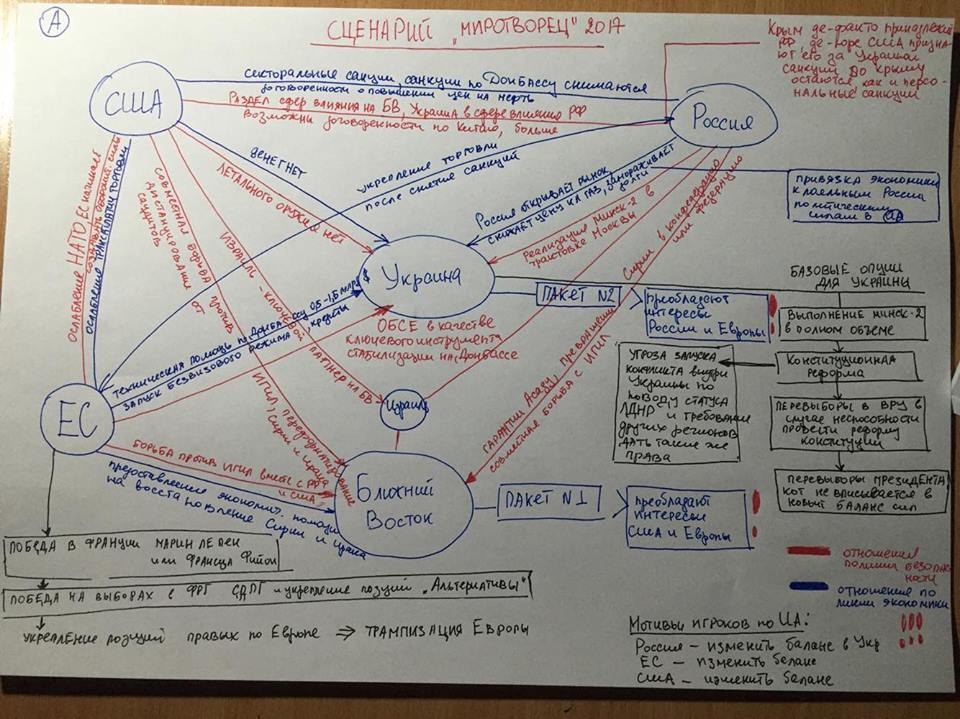 А
СЦЕНАРИЙ „МИРОТВОРЕЦ" 2017
Крым де-факто принадлежит
РФ, де-юре США призна
ют его за Украиной
Санкции по Крыму
остаются как и персо-
нальные санкции
США
Россия
Секторальные санкции, санкции по Донбассу снимаются
договоренности о повышении цен на нефть
Раздел сфер влияния на БВ, Украина в сфере влияния РФ
Возможны договоренности по Китаю, больше
ДЕНЕГ НЕТ
ЛЕТАЛЬНОГО ОРУЖИЯ НЕТ
укрепление торговли
после снятие санкций
Россия открывает рынок,
снижает цену на газ, замораживает
долги
Реализация Минск-2 в
трактовке Москвы
ПРИВЯЗКА ЭКОНОМИКИ
к лояльным России
политическим
силам в UA
Ослабление НАТО, ЕС начинает
создавать оборонит. силы
Ослабление трансатлант. торговли
Совместная борьба против
Дистанцирование от
саудитов
ИГИЛ,
переформатирование
Сирии и Ирака
ИЗРАИЛЬ - ключевой партнер на БВ
Украина
Техническая помощь по Донбассу 0,5-1,5 млрд $
Запуск безвизового режима кредиты
ОБСЕ в качестве
ключевого инструмента
стабилизации на Донбассе
Гарантии Асаду, превращение Сирии в конфедерацию
или федерацию
совместная борьба с ИГИЛ
ПАКЕТ №2
преобладают
интересы
России и Европы
БАЗОВЫЕ ОПЦИИ
ДЛЯ УКРАИНЫ
ВЫПОЛНЕНИЕ МИНСК-2
В ПОЛНОМ ОБЪЕМЕ
КОНСТИТУЦИОННАЯ
РЕФОРМА
УГРОЗА ЗАПУСКА
конфликта внутри
Украины по
поводу статуса
ЛДНР и требовании
других регионов
дать такие же
права
ПЕРЕВЫБОРЫ В ВРУ В
случае неспособности
провести реформу
конституции
ПЕРЕВЫБОРЫ ПРЕЗИДЕНТА
КОТ НЕ ВПИСЫВАЕТСЯ В
НОВЫЙ БАЛАНС СИЛ
ЕС
Израиль
Ближний
Восток
Борьба против ИГИЛ вместе с РФ
и США
предоставления экономит. помощи
на восстановление Сирии и Ирака
ПАКЕТ №1
преобладают
интересы
США и Европы
ПОБЕДА В ФРАНЦИИ МАРИН ЛЕПЕН
или Франсуа Фийон
ПОБЕДА НА ВЫБОРАХ В ФРГ СДПГ и укрепление позиций „Альтернативы"
УКРЕПЛЕНИЕ ПОЗИЦИЙ правых по Европе ⇒ ТРАМПИЗАЦИЯ ЕВРОПЫ
отношения
по линии безопас
ности
отношение по
линии экономики
Мотивы игроков по UA:
Россия – изменить баланс в Укр
ЕС – изменить баланс
США – изменить баланс